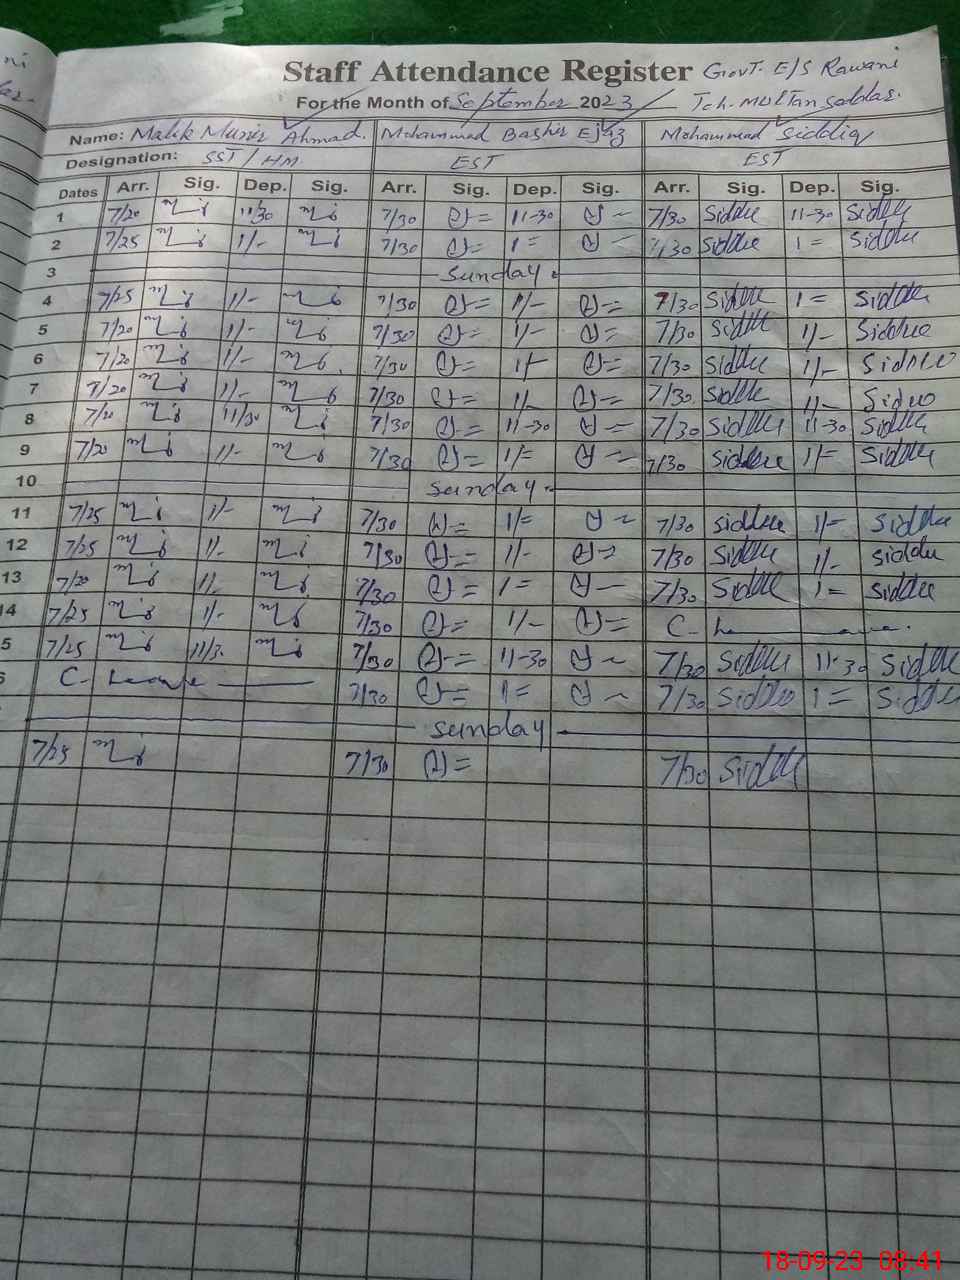 Staff Attendance Register Govt. E/S Rawani
For the Month of September 2023 Teh. Multan Saddar.
Name: Malik Munir Ahmad. Mohammad Bashir Ejaz Mohammad Siddiq
Designation: SST / HM EST EST
Dates Arr. Sig. Dep. Sig. Arr. Sig. Dep. Sig. Arr. Sig. Dep. Sig.
1 7/20 11/30 7/30 11-30 7/30 Siddiu 11-30 Siddiu
2 7/25 1/- 7/30 1= 7/30 Siddiu 1= Siddiu
3 Sunday
4 7/25 1/- 7/30 1/- 7/30 Siddiu 1= Siddiu
5 7/20 1/- 7/30 1/- 7/30 Siddiu 1/- Siddiu
6 7/20 1/- 7/30 1/- 7/30 Siddiu 1/- Siddiu
7 7/20 1/- 7/30 1/- 7/30 Siddiu 1/- Siddiu
8 7/20 11/30 7/30 11-30 7/30 Siddiu 11-30 Siddiu
9 7/20 1/- 7/30 1/= 7/30 Siddiu 1/= Siddiu
10 Sunday
11 7/25 1/- 7/30 1/= 7/30 Siddiu 1/- Siddiu
12 7/25 1/- 7/30 1/- 7/30 Siddiu 1/- Siddiu
13 7/20 1/- 7/30 1= 7/30 Siddiu 1= Siddiu
14 7/25 1/- 7/30 1/- C- Leave.
5 7/25 11/3 7/30 11-30 7/30 Siddiu 11-30 Siddiu
6 C- Leave 7/30 1= 7/30 Siddiu 1= Siddiu
Sunday
7/25 7/30 7/30 Siddiu
18-09-23 08:41